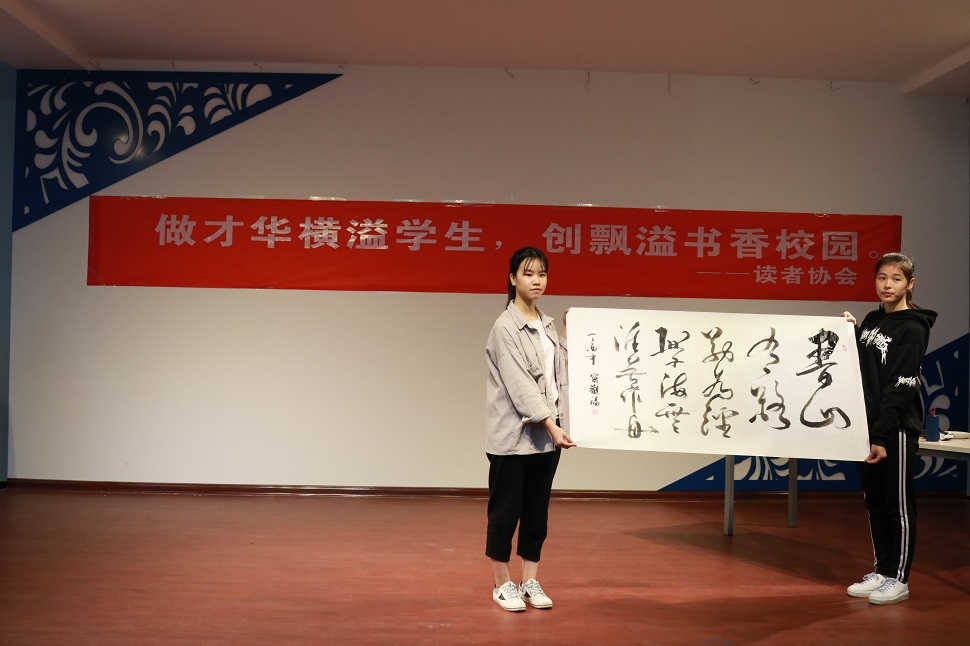 做才华横溢学生，创飘溢书香校园。
——读者协会
書山
有路
勤为經
學海無
涯苦作舟